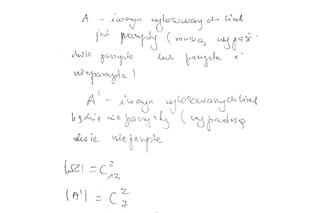 A - iloczyn wylosowanych liczb
jest parzysty (muszą wypaść
dwie parzyste lub parzysta i
nieparzysta)
A' - iloczyn wylosowanych liczb
będzie nieparzysty (wypadną
dwie nieparzyste
|Ω| = C²₁₃
|A'| = C²₇